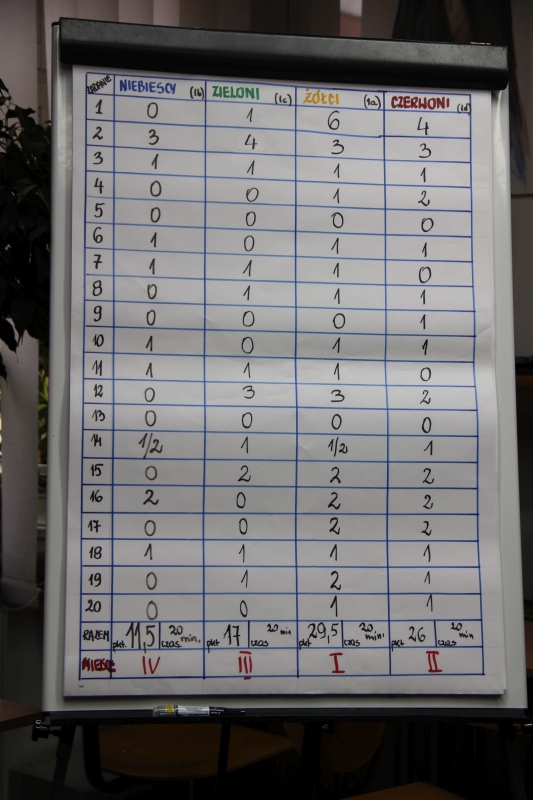 ZADANIE NIEBIESCY (1b) ZIELONI (1c) ŻÓŁCI (1a) CZERWONI (1d)
1 0 1 6 4
2 3 4 3 3
3 1 1 1 1
4 0 0 1 2
5 0 0 0 0
6 1 0 1 1
7 1 1 1 0
8 0 1 1 1
9 0 0 0 1
10 1 0 1 1
11 1 1 1 0
12 0 3 3 2
13 0 0 0 0
14 1/2 1 1/2 1
15 0 2 2 2
16 2 0 2 2
17 0 0 2 2
18 1 1 1 1
19 0 1 2 1
20 0 0 1 1
RAZEM pkt. 11,5 czas 20 min. pkt 17 czas 20 min pkt 29,5 czas 20 min. pkt 26 czas 20 min
MIEJSCE IV III I II